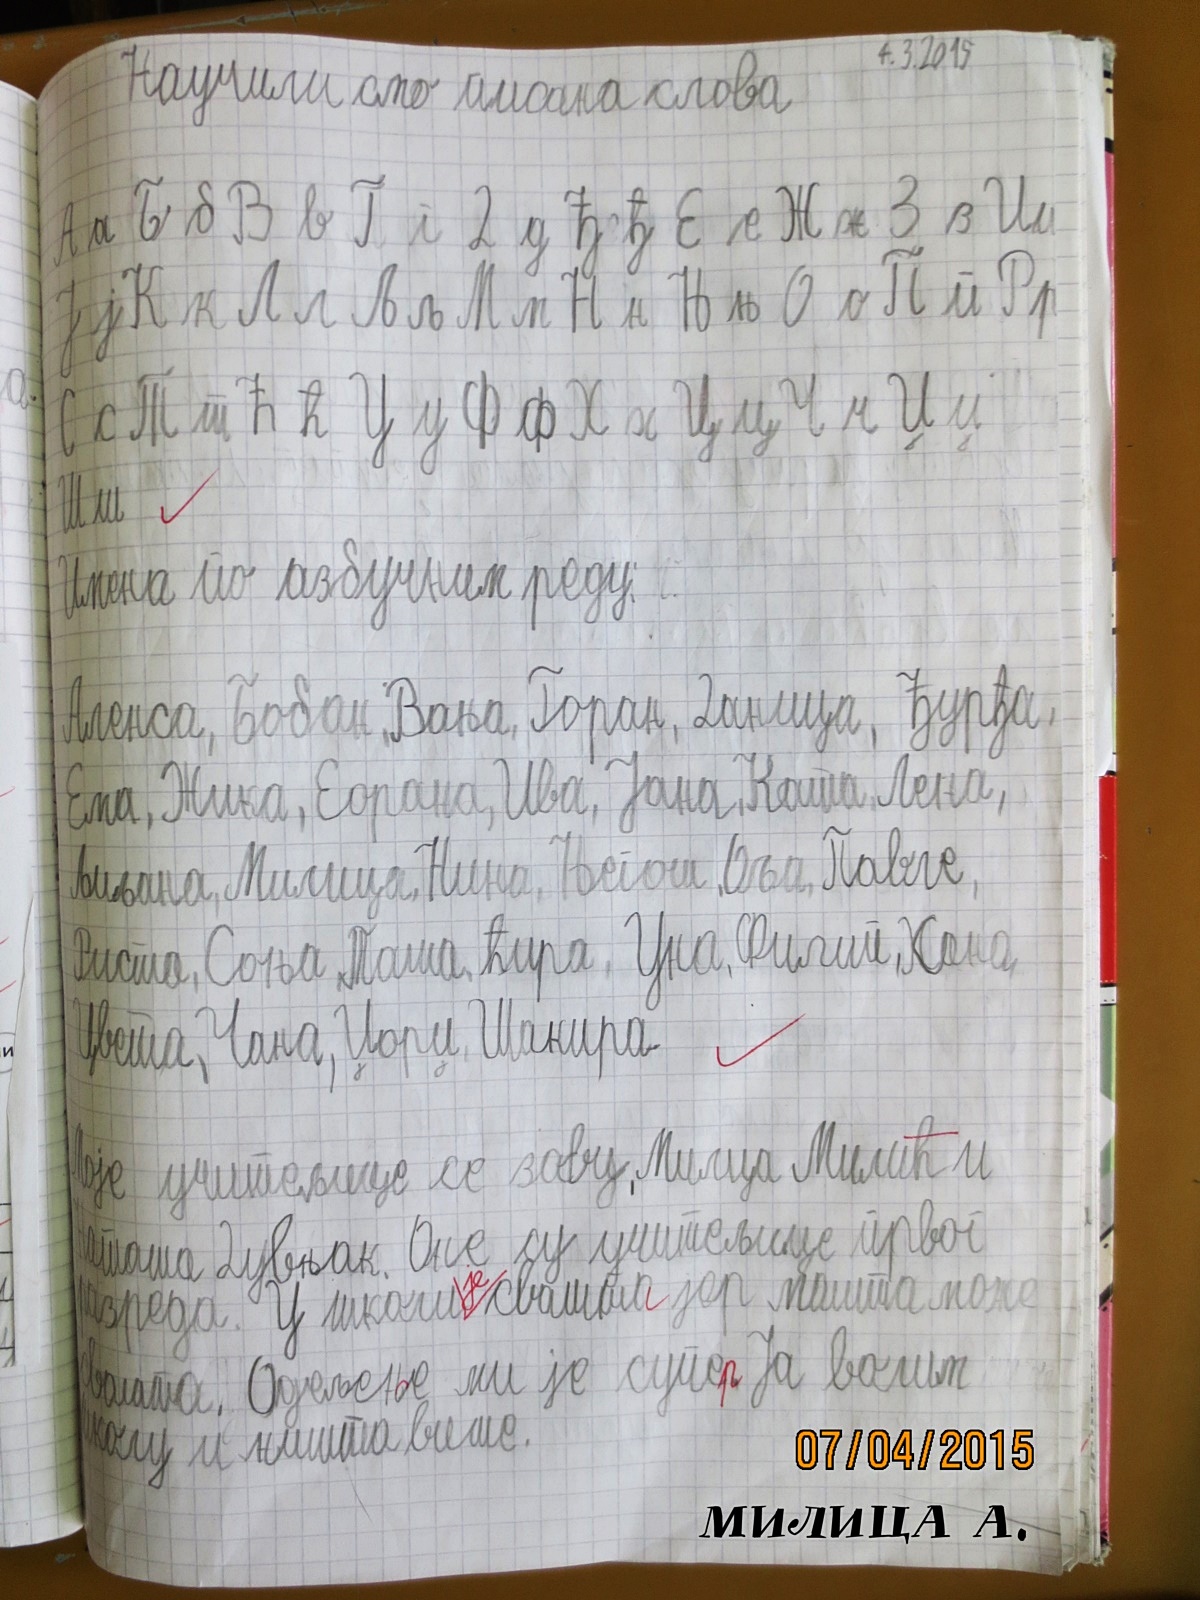 4.3.2015
Научили смо писана слова
А а Б б В в Г г Д д Ђ ђ Е е Ж ж З з И и
Ј ј К к Л л Љ љ М м Н н Њ њ О о П п Р р
С с Т т Ћ ћ У у Ф ф Х х Ц ц Ч ч Џ џ
Ш ш
Имена по азбучним реду:
Алекса, Бобан, Вања, Горан, Даница, Ђурђа,
Ема, Жика, Зорана, Ива, Јана, Ката, Лена,
Љиљана, Милица, Нина, Његош, Оља, Павле,
Риста, Соња, Таша, Ћира, Уна, Филип, Хана,
Цвета, Чана, Џорџ, Шакира.
Моје учитељице се зову, Милица Милић и
Наташа Дувњак. Оне су учитељице првог
разреда. У школи је свашта јер машта може
свашта. Одељење ми је супер Ја волим
школу и ништа више.
07/04/2015
МИЛИЦА А.